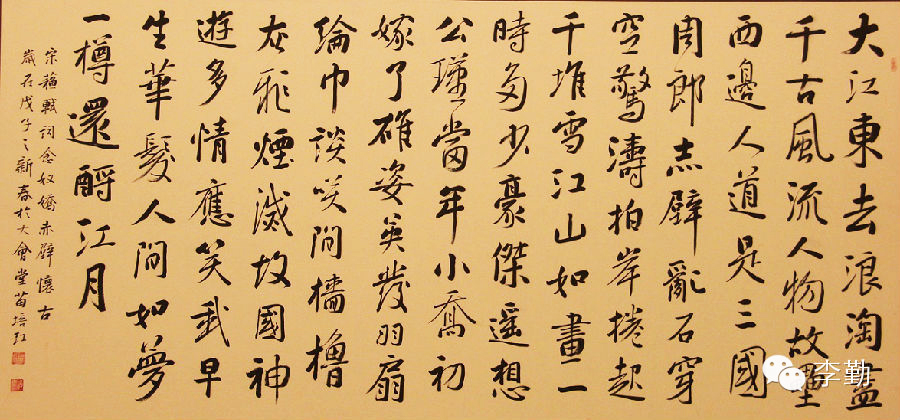 大江東去浪淘盡
千古風流人物故壘
西邊人道是三國
周郎赤壁亂石穿
空驚濤拍岸捲起
千堆雪江山如畫一
時多少豪傑遙想
公瑾當年小喬初
嫁了雄姿英發羽扇
綸巾談笑間檣櫓
灰飛煙滅故國神
遊多情應笑我早
生華髮人間如夢
一樽還酹江月
宋蘇軾詞念奴嬌赤壁懷古
歲在戊子之新春於大會堂苗培紅
李勤